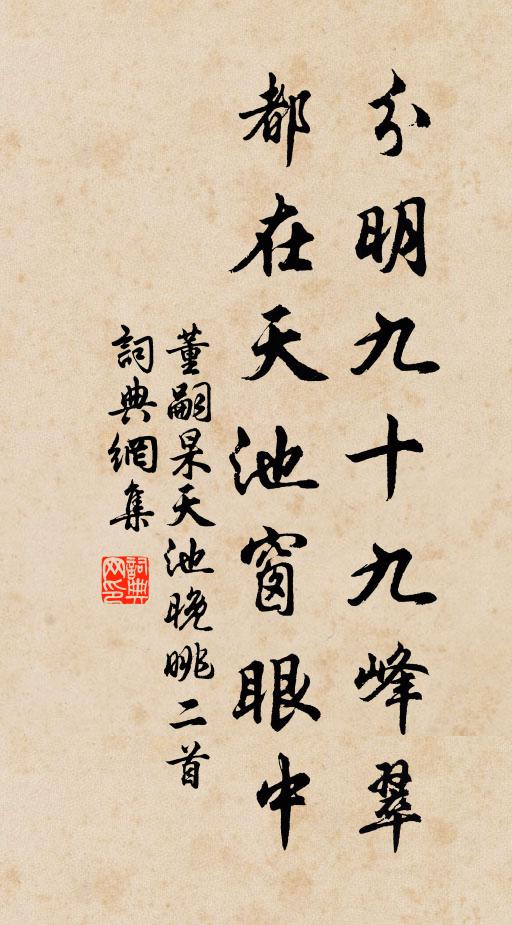 分明九十九峰翠
都在天池窗眼中
董嗣杲天池晚眺二首
詞典網集
詞典網印